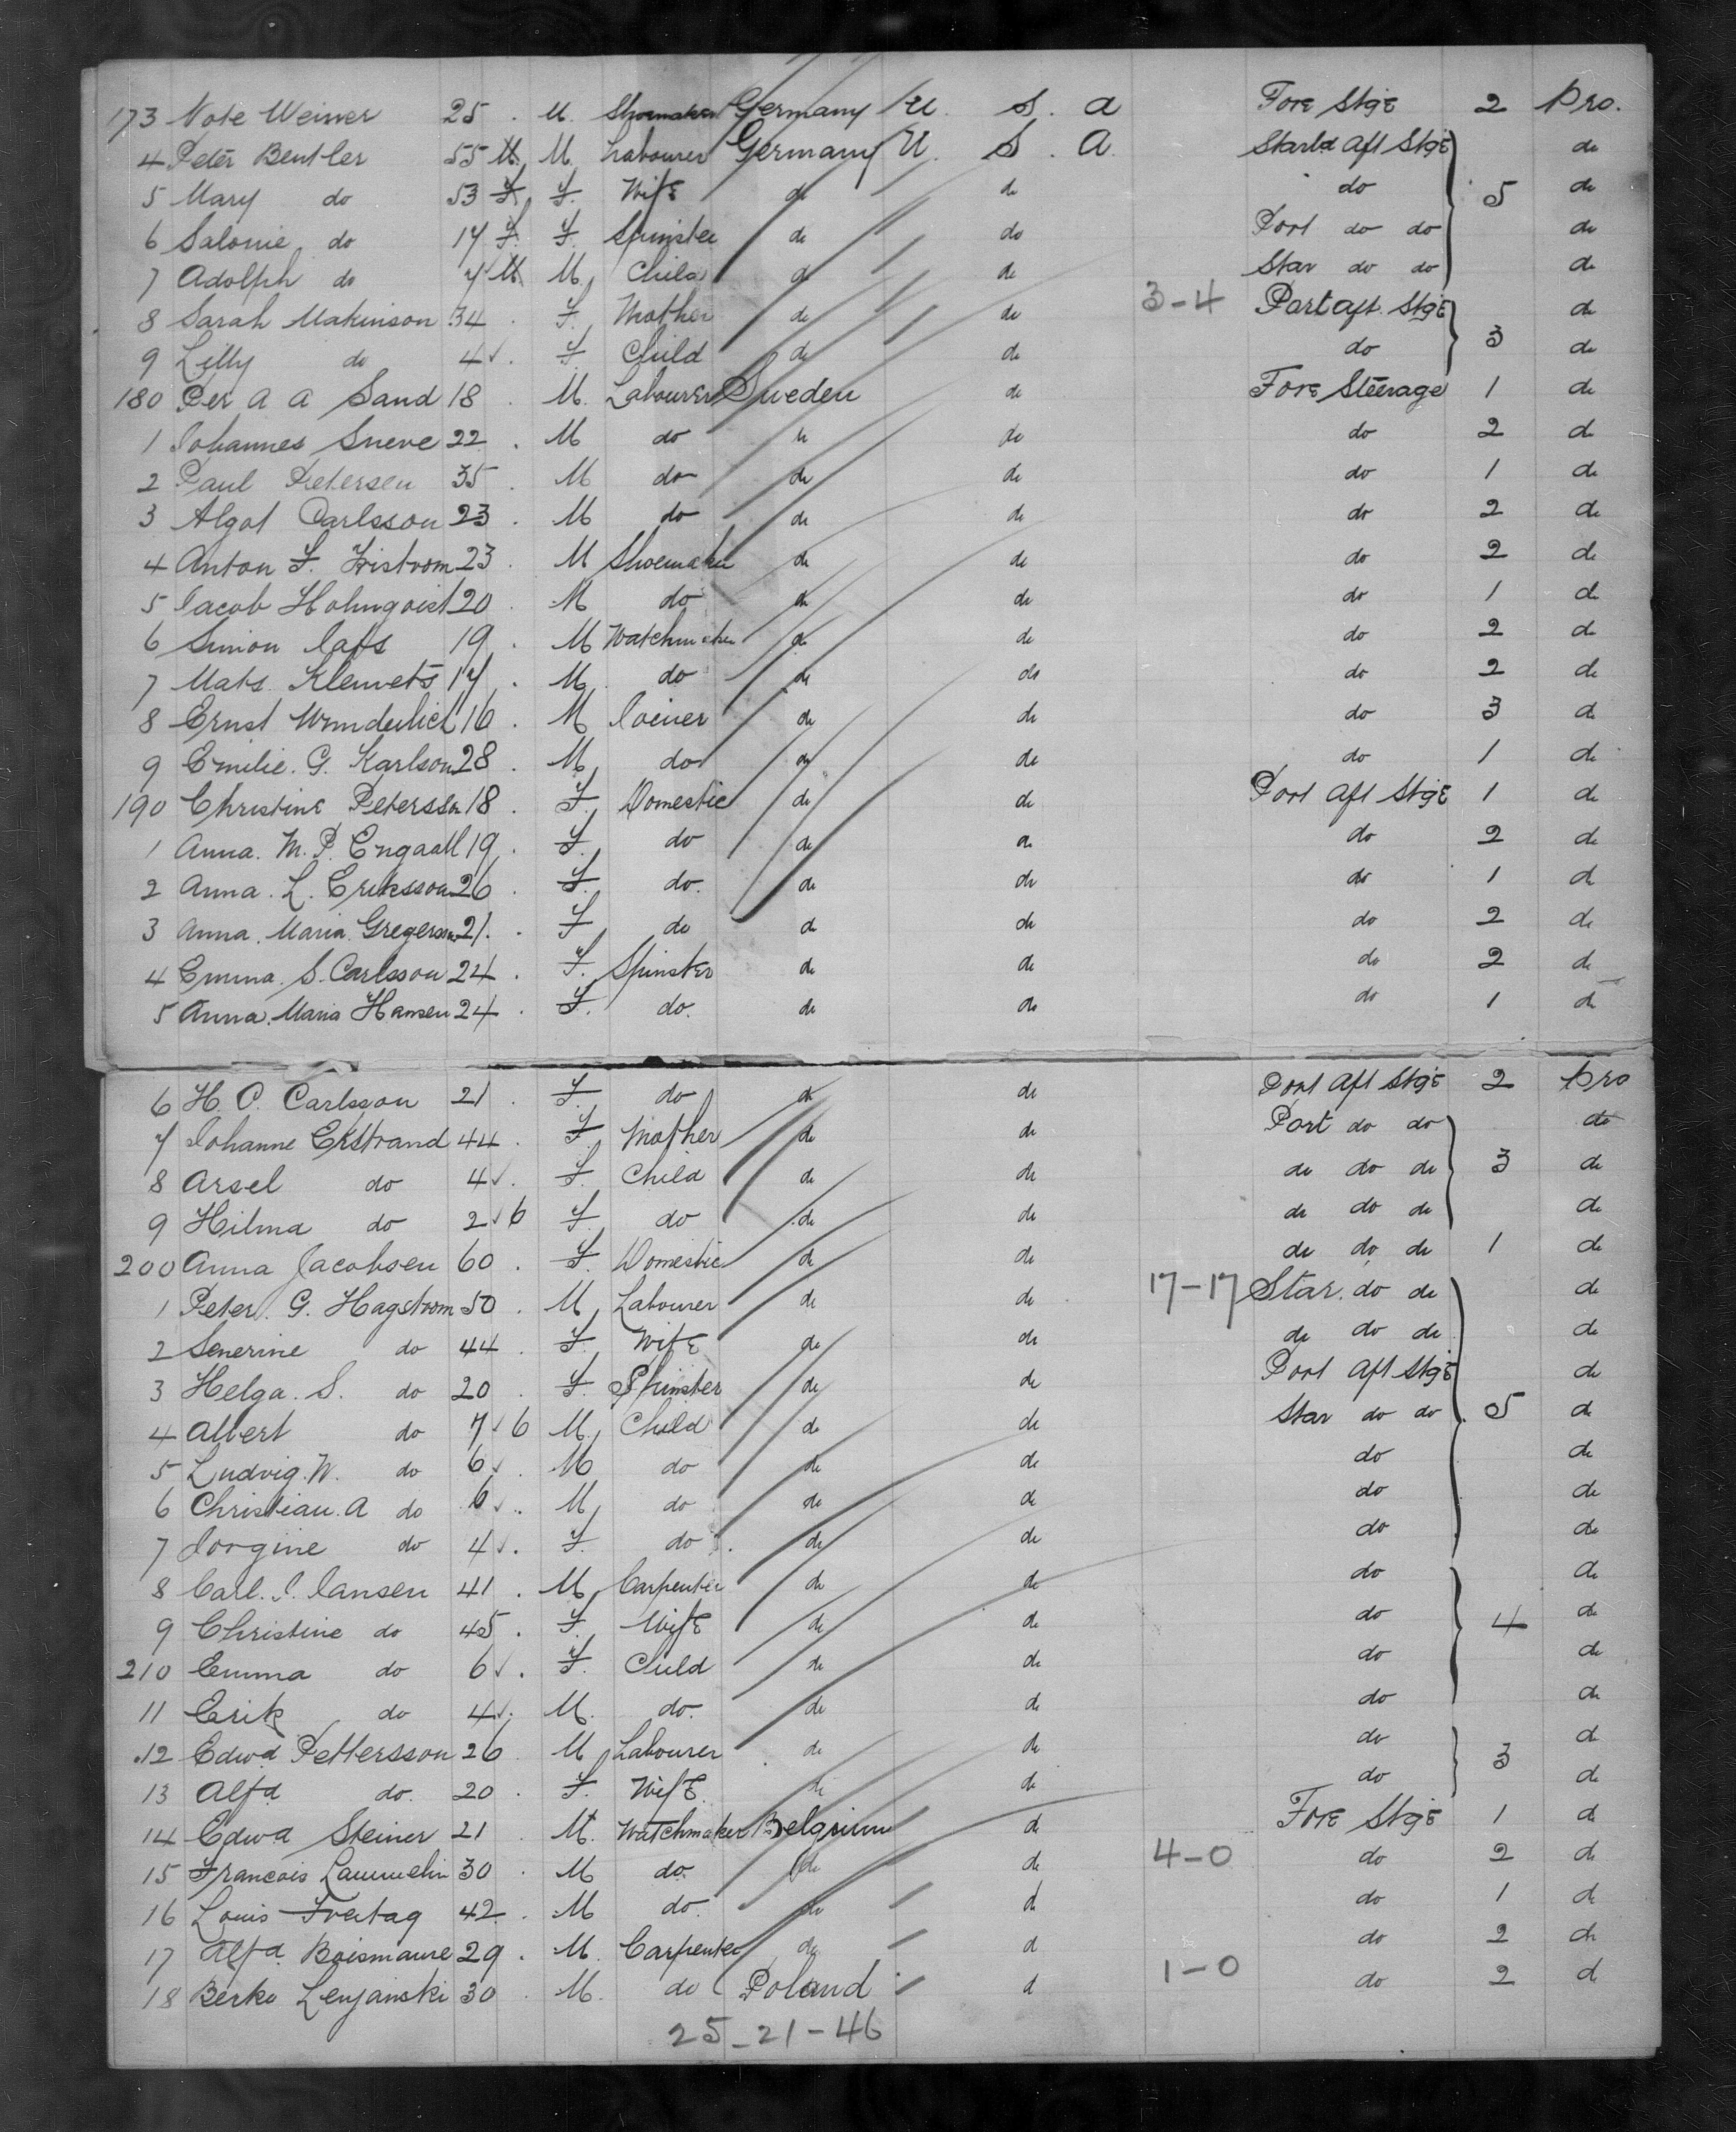 173 Note Weiner 25 . M. Shoemaker Germany U. S. A Fore Stge 2 Pro.
4 Peter Beutler 55 M. M. Labourer Germany U. S. A. Starbd Aft Stge do
5 Mary do 53 F. F. Wife do do do 5 do
6 Salonie do 17 F. F. Spinster do do Port do do do
7 Adolph do 7 M M. Child do do Star do do do
8 Sarah Makinson 34 . F. Mother do do 3-4 Port aft. Stge do
9 Lilly do 4 . F. Child do do do 3 do
180 Per A A Sand 18 . M. Labourer Sweden do Fore Steerage 1 do
1 Johannes Sneve 22 . M do do do do 2 do
2 Paul Petersen 35 . M do do do do 1 do
3 Algot Carlsson 23 . M do do do do 2 do
4 Anton F. Fristrom 23 . M Shoemaker do do do 2 do
5 Jacob Holmqvist 20 . M do do do do 1 do
6 Simon 19 . M Watchmaker do do do 2 do
7 Mats Klemets 17 . M do do do do 2 do
8 Ernst Wunderlich 16 . M Joiner do do do 3 do
9 Emilie. G. Karlson 28 . M do do do do 1 do
190 Christine Petersson 18 . F. Domestic do do Port Aft Stge 1 do
1 Anna. M. P. Engaall 19 . F. do do do do 2 do
2 Anna. L. Eriksson 26 . F. do. do do do 1 do
3 Anna. Maria. Gregersson 21. . F do do do do 2 do
4 Emma. S. Carlsson 24 . F. Spinster do do do 2 do
5 Anna. Maria Hansen 24 . F. do. do do do 1 do
6 H. C. Carlsson 21 . F. do do do Port Aft Stge 2 Pro
7 Johanne Ekstrand 44 . F. Mother do do Port do do do
8 Arsel do 4 . F. Child do do do do do 3 do
9 Hilma do 2 6 F. do do do do do do do
200 Anna Jacobsen 60 . F. Domestic do do do do do 1 do
1 Peter. G. Hagstrom 50 . M. Labourer do do 17-17 Star. do do do
2 Senerine do 44 . F. Wife do do do do do do
3 Helga. S. do 20 . F. Spinster do do Port Aft Stge do
4 Albert do 7 6 M. Child do do Star do do 5 do
5 Ludvig. W. do 6 . M do do do do do
6 Christian. A do 6 . M. do do do do do
7 Jorgine do 4 . F. do . do do do do
8 Carl. J. Jansen 41 . M. Carpenter do do do do
9 Christine do 45 . F. Wife do do do 4 do
210 Emma do 6 . F. Child do do do do
11 Erik do 4 . M. do. do do do do
12 Edwd Pettersson 26 M Labourer do do do 3 do
13 Alfd do. 20 . F. Wife. do do do do
14 Edwd Steiner 21 . M. Watchmaker Belgium do Fore Stge 1 do
15 Francois 30 . M do. do do 4-0 do 2 do
16 Louis Freitag 42 . M do. do do do 1 do
17 Alfd Boismaure 29 . M. Carpenter do do do 2 do
18 Berko Lenjanski 30 . M. do Poland do 1-0 do 2 do
25-21-46